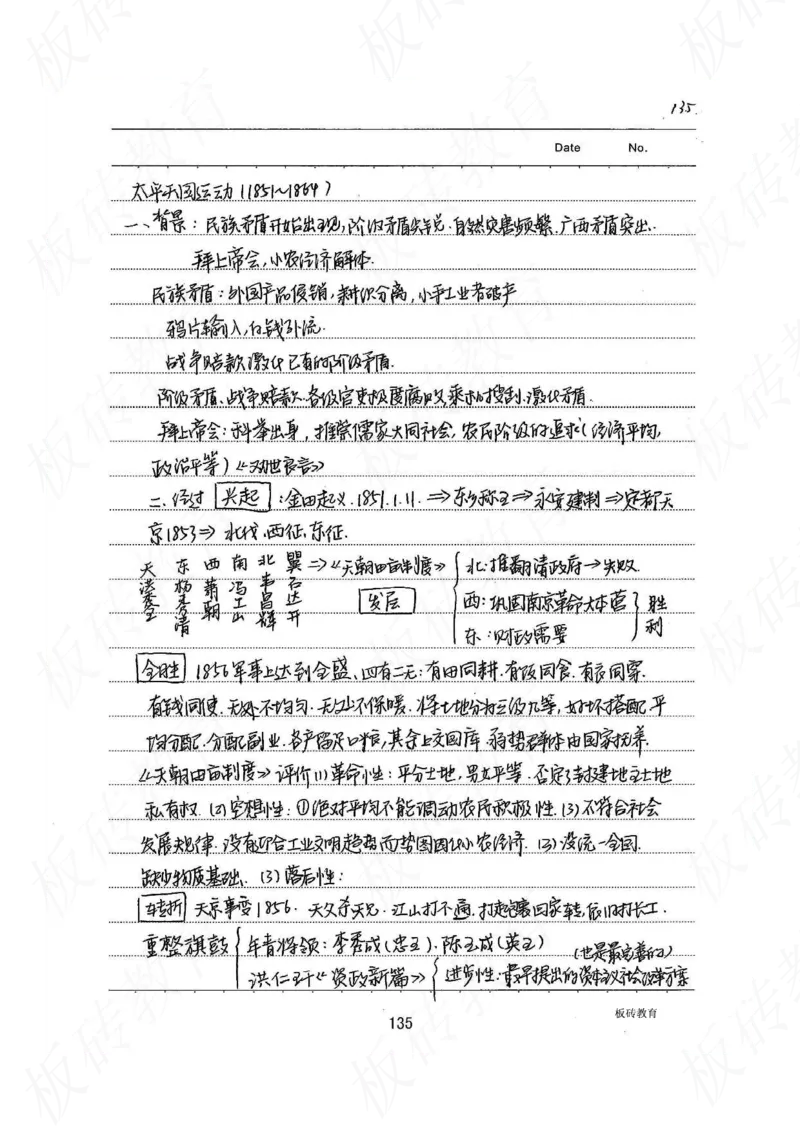 135
Date No.
太平天国运动(1851~1864)
一、背景:民族矛盾开始出现,阶级矛盾尖锐.自然灾害频繁.广西矛盾突出.
拜上帝会,小农经济解体.
民族矛盾:外国产品倾销,耕织分离,小手工业者破产
鸦片输入,白银外流.
战争赔款激化已有的阶级矛盾.
阶级矛盾.战争赔款.各级官吏极度腐败,乘机搜刮.激化矛盾.
拜上帝会:科举出身,推崇儒家大同社会,农民阶级的追求(经济平均,
政治平等)《劝世良言》
二.经过 兴起:金田起义.1851.1.11.⇒东乡称王⇒永安建制⇒定都天
京1853⇒北伐,西征,东征.
天 东 西 南 北 翼 ⇒《天朝田亩制度》 北:推翻清政府→失败
洪秀全 杨秀清 萧朝 冯云山 韦昌辉 石达开 发展 西:巩固南京革命大本营 胜利
东:财政需要
全胜 1856军事上达到全盛、四有二无:有田同耕.有饭同食.有衣同穿.
有钱同使.无处不均匀.无处不保暖.将土地分为三级九等,好坏搭配平
均分配.分配副业.各产留足口粮,其余上交国库.弱势群体由国家抚养.
《天朝田亩制度》评价(1)革命性:平分土地,男女平等.否定了封建地主土地
私有权.(2)空想性:①绝对平均不能调动农民积极性.(3)不符合社会
发展规律.没有迎合工业文明趋势而势图固化小农经济.(3)没统一全国.
缺少物质基础.(3)落后性:
转折 天京事变1856.天父杀天兄.江山打不通.打起包裹回家转,依旧打长工.
重整旗鼓 年青将领:李秀成(忠王).陈玉成(英王)
(也是最完善的)
洪仁玕《资政新篇》 进步性:最早提出的资本主义社会改革方案
135
板砖教育